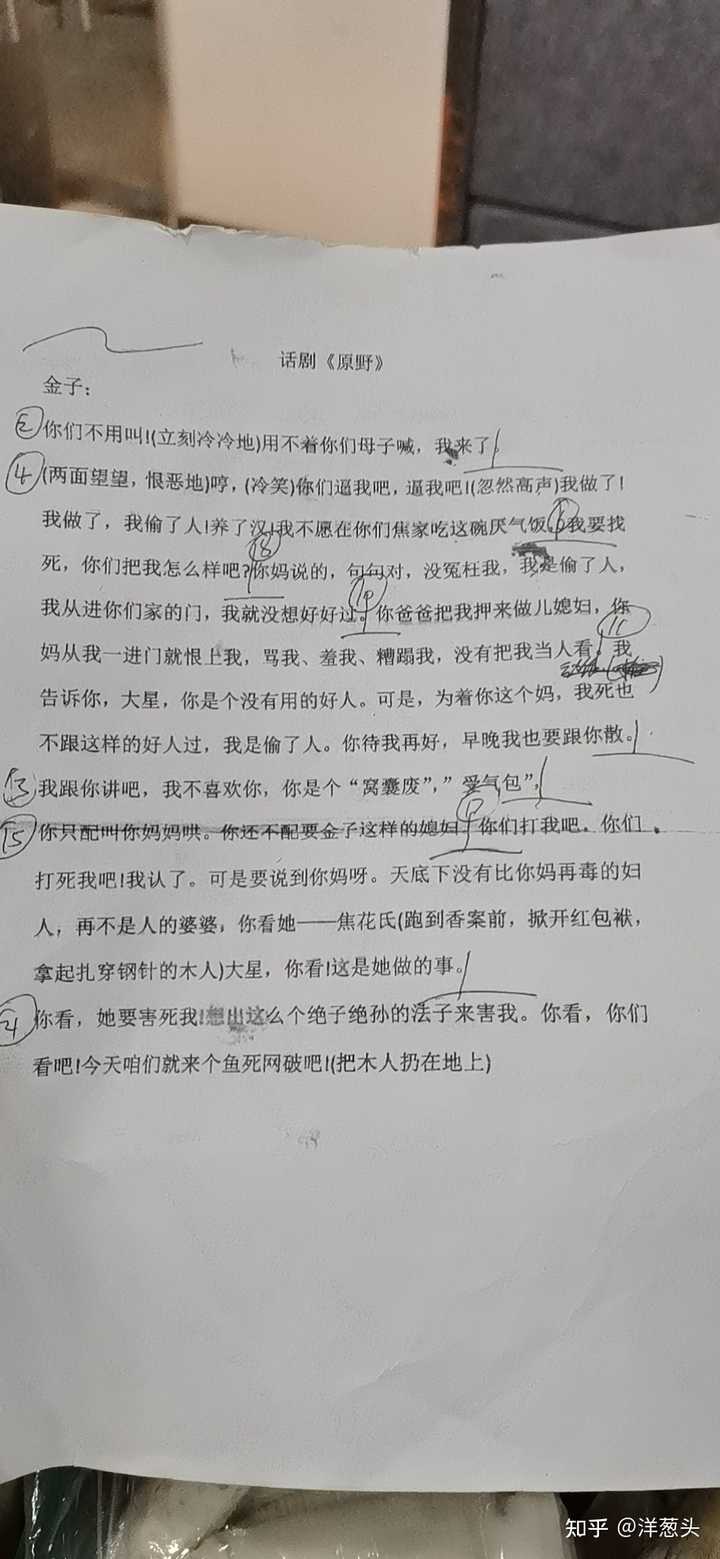 话剧《原野》
金子：
② 你们不用叫!(立刻冷冷地)用不着你们母子喊，我来了。
④ (两面望望，恨恶地)哼，(冷笑)你们逼我吧，逼我吧!(忽然高声)我做了!
我做了，我偷了人!养了汉!我不愿在你们焦家吃这碗厌气饭。我要找
死，你们把我怎么样吧?你妈说的，句句对，没冤枉我，我是偷了人，
我从进你们家的门，我就没想好好过。你爸爸把我押来做儿媳妇，你
妈从我一进门就恨上我，骂我、羞我、糟蹋我，没有把我当人看。我
告诉你，大星，你是个没有用的好人。可是，为着你这个妈，我死也
不跟这样的好人过，我是偷了人。你待我再好，早晚我也要跟你散。
我跟你讲吧，我不喜欢你，你是个“窝囊废”，”受气包”，
⑮ 你只配叫你妈妈哄。你还不配要金子这样的媳妇。你们打我吧。你们
打死我吧!我认了。可是要说到你妈呀。天底下没有比你妈再毒的妇
人，再不是人的婆婆，你看她——焦花氏(跑到香案前，掀开红包袱，
拿起扎穿钢针的木人)大星，你看!这是她做的事。
你看，她要害死我!想出这么个绝子绝孙的法子来害我。你看，你们
看吧!今天咱们就来个鱼死网破吧!(把木人扔在地上)
知乎 @洋葱头